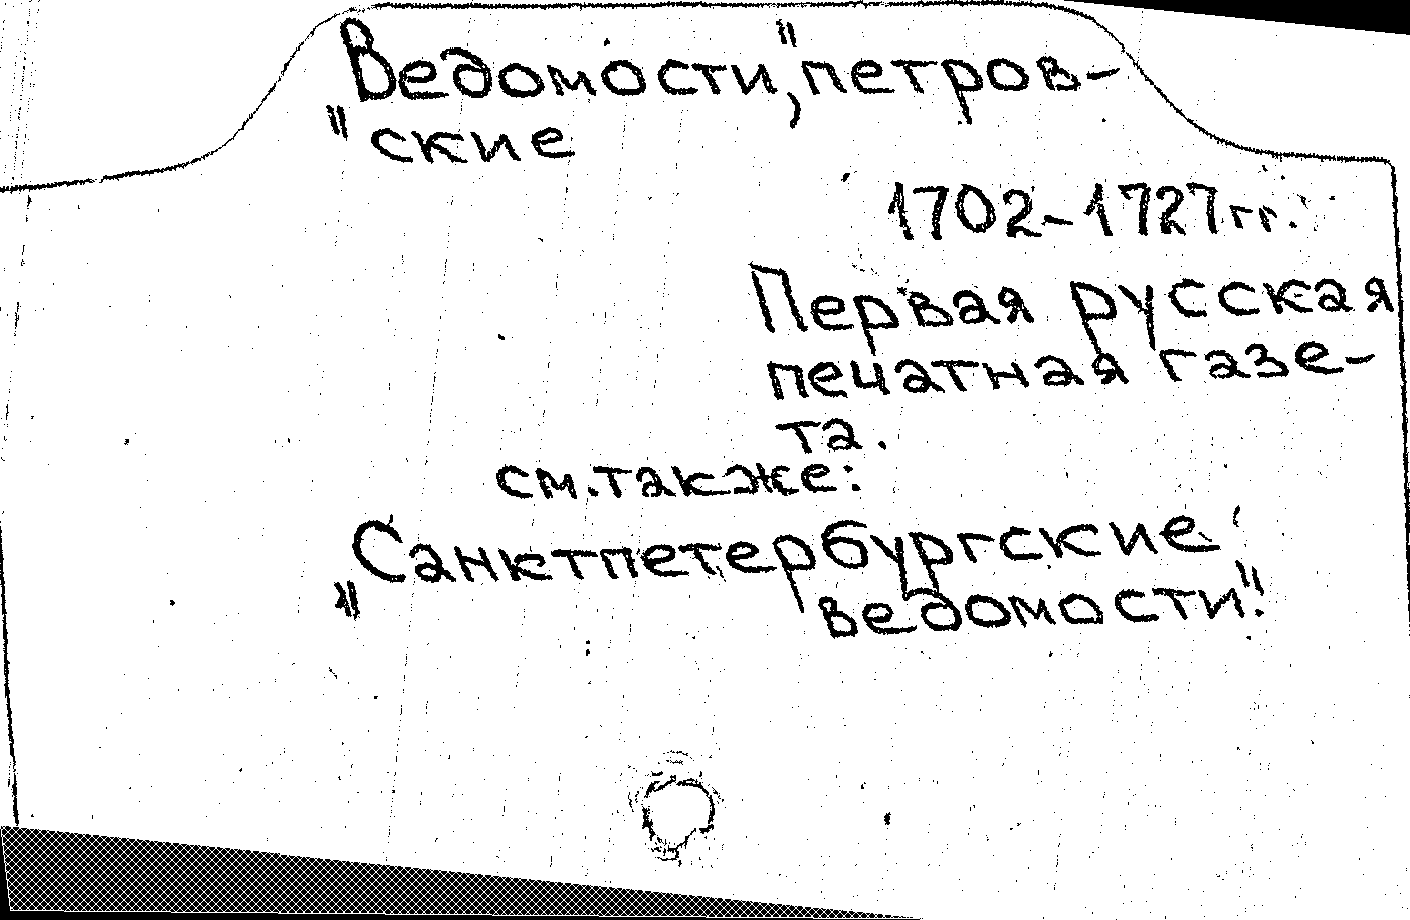 Ведомости", петров-
"ские
1702-1727 гг.
Первая русская
печатная газе-
та.
см. также:
Санктпетербургские
"ведомости".